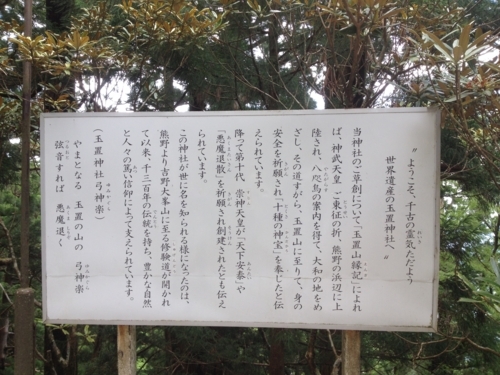 〝ようこそ、千古の霊気ただよう
世界遺産の玉置神社へ〟
当神社のご草創について「玉置山縁記」によれ
ば、神武天皇ご東征の折、熊野の浜辺に上
陸され、八咫烏の案内を得て、大和の地をめ
ざし、その道すがら、玉置山に至りて、身の
安全を祈願され「十種の神宝」を奉じたと伝
えられています。
降って第十代、崇神天皇が「天下安泰」や
「悪魔退散」を祈願され創建されたとも伝え
られています。
この神社が世に名を知られる様になったのは、
熊野より吉野大峯山に至る修験道が開かれ
て以来、千三百年の伝統を持ち、豊かな自然
と人々の篤い信仰によって支えられています。
（玉置神社弓神楽）
やまとなる　玉置の山の　弓神楽
弦音すれば　悪魔退く